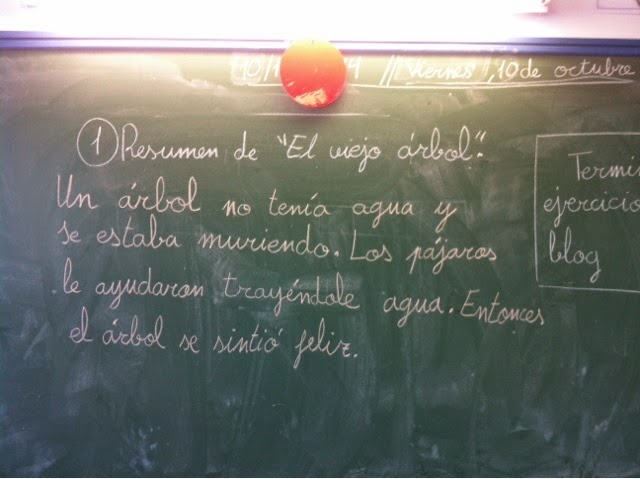 10/1 4 // Viernes, 10 de octubre
① Resumen de "El viejo árbol".
Un árbol no tenía agua y
se estaba muriendo. Los pájaros
le ayudaron trayéndole agua. Entonces
el árbol se sintió feliz.
Termin
ejercicio
blog